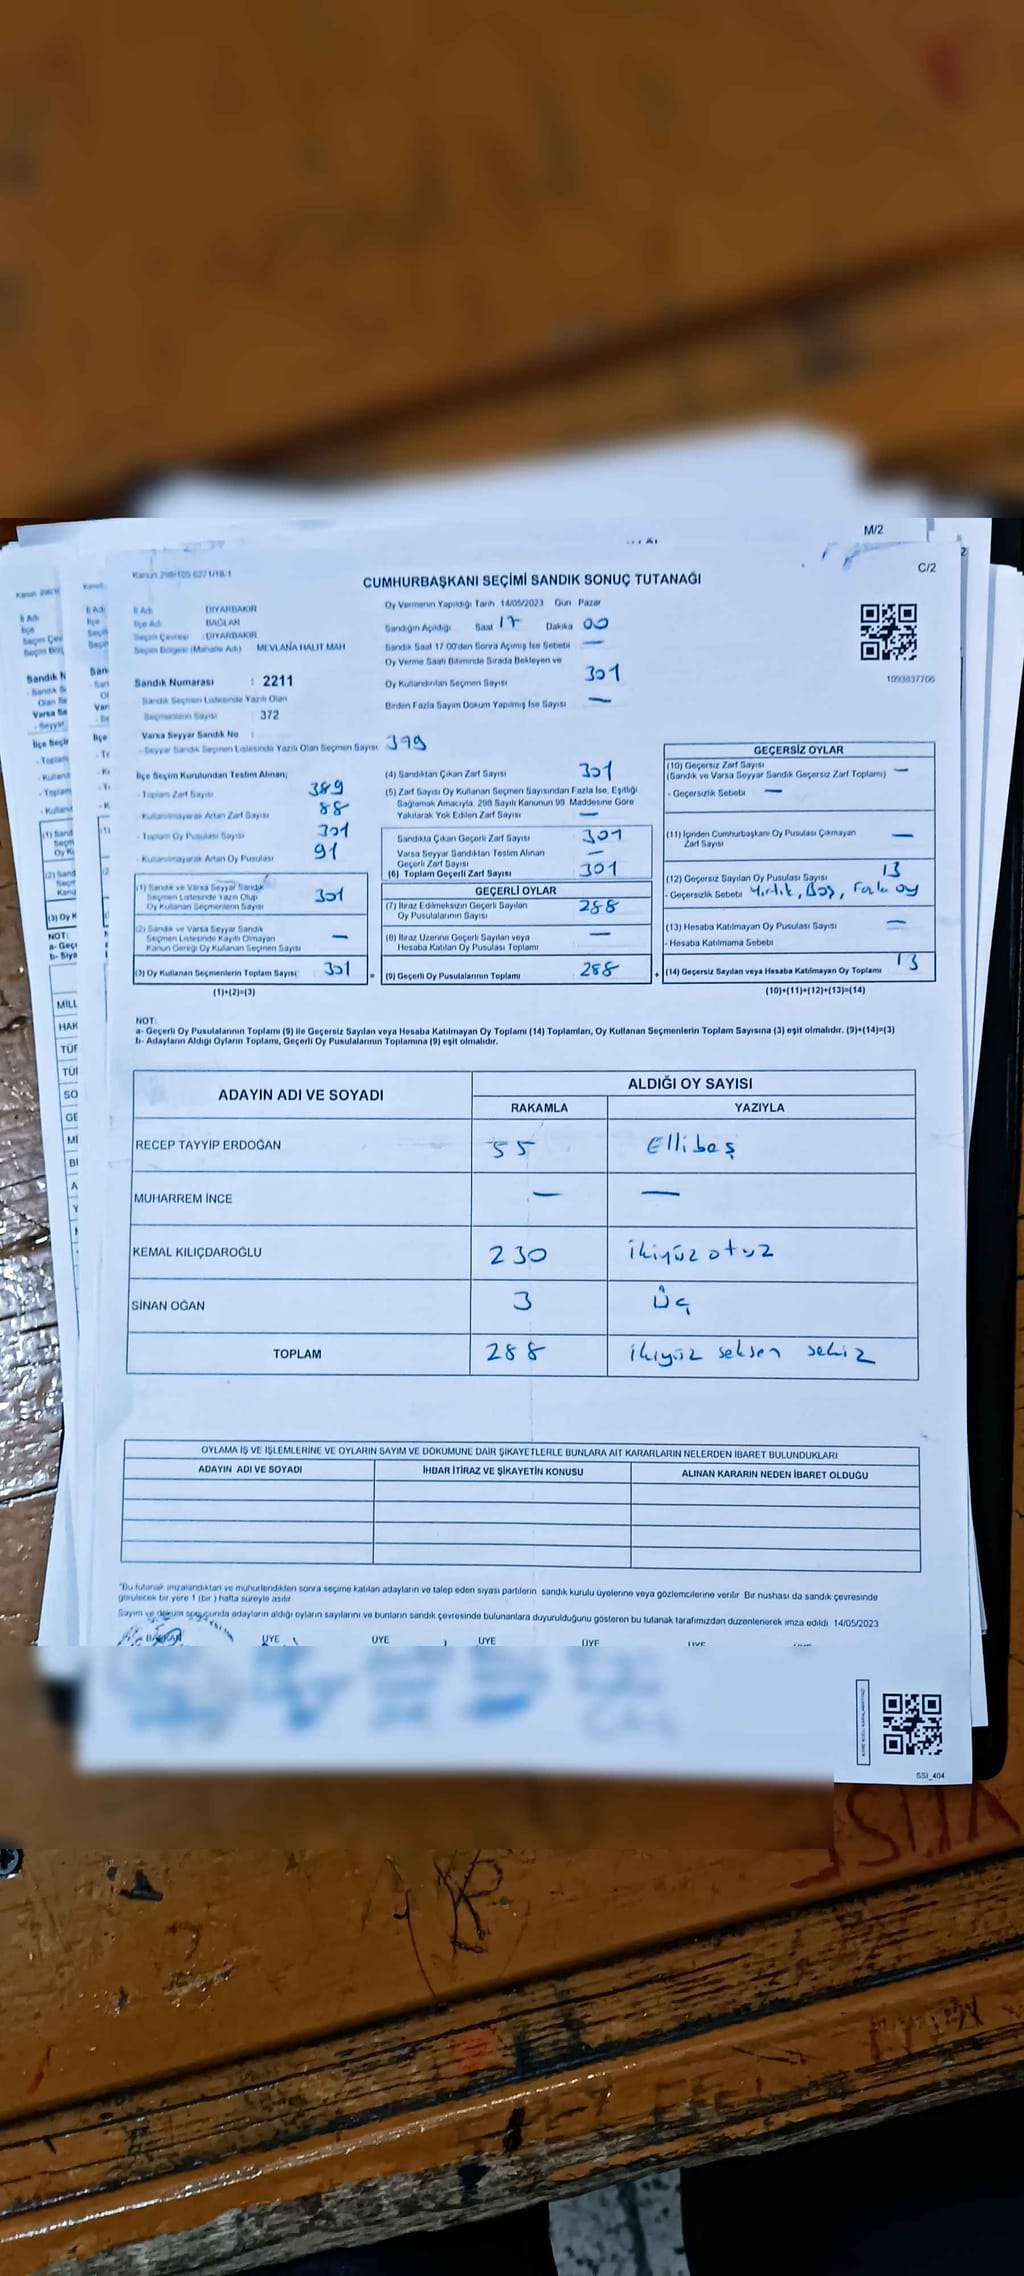 M/2
C/2
Kanun 298/105 6271/18-1
CUMHURBAŞKANI SEÇİMİ SANDIK SONUÇ TUTANAĞI
İl Adı : DİYARBAKIR
İlçe Adı : BAĞLAR
Seçim Çevresi : DİYARBAKIR
Seçim Bölgesi (Mahalle Adı) : MEVLANA HALİT MAH
Sandık Numarası : 2211
Sandık Seçmen Listesinde Yazılı Olan
Seçmenlerin Sayısı : 372
Varsa Seyyar Sandık No :
- Seyyar Sandık Seçmen Listesinde Yazılı Olan Seçmen Sayısı
Oy Vermenin Yapıldığı Tarih 14/05/2023 Gün Pazar
Sandığın Açıldığı Saat 17 Dakika 00
Sandık Saat 17.00'den Sonra Açılmış İse Sebebi —
Oy Verme Saati Bitiminde Sırada Bekleyen ve
Oy Kullandırılan Seçmen Sayısı 301
Birden Fazla Sayım Döküm Yapılmış İse Sayısı —
1093837706
İlçe Seçim Kurulundan Teslim Alınan;
- Toplam Zarf Sayısı 389
- Kullanılmayarak Artan Zarf Sayısı 88
- Toplam Oy Pusulası Sayısı 391
- Kullanılmayarak Artan Oy Pusulası 91
(1) Sandık ve Varsa Seyyar Sandık
Seçmen Listesinde Yazılı Olup
Oy Kullanan Seçmenlerin Sayısı 301
(2) Sandık ve Varsa Seyyar Sandık
Seçmen Listesinde Kayıtlı Olmayan
Kanun Gereği Oy Kullanan Seçmen Sayısı —
(3) Oy Kullanan Seçmenlerin Toplam Sayısı 301
(1)+(2)=(3)
(4) Sandıktan Çıkan Zarf Sayısı 301
(5) Zarf Sayısı Oy Kullanan Seçmen Sayısından Fazla İse, Eşitliği
Sağlamak Amacıyla, 298 Sayılı Kanunun 98. Maddesine Göre
Yakılarak Yok Edilen Zarf Sayısı —
Sandıkta Çıkan Geçerli Zarf Sayısı 301
Varsa Seyyar Sandıktan Teslim Alınan
Geçerli Zarf Sayısı —
(6) Toplam Geçerli Zarf Sayısı 301
GEÇERLİ OYLAR
(7) İtiraz Edilmeksizin Geçerli Sayılan
Oy Pusulalarının Sayısı 288
(8) İtiraz Üzerine Geçerli Sayılan veya
Hesaba Katılan Oy Pusulası Toplamı —
(9) Geçerli Oy Pusulalarının Toplamı 288
GEÇERSİZ OYLAR
(10) Geçersiz Zarf Sayısı
(Sandık ve Varsa Seyyar Sandık Geçersiz Zarf Toplamı) —
- Geçersizlik Sebebi —
(11) İçinden Cumhurbaşkanı Oy Pusulası Çıkmayan
Zarf Sayısı —
(12) Geçersiz Sayılan Oy Pusulası Sayısı 13
- Geçersizlik Sebebi Yırtık, Boş, Fazla oy
(13) Hesaba Katılmayan Oy Pusulası Sayısı —
- Hesaba Katılmama Sebebi
(14) Geçersiz Sayılan veya Hesaba Katılmayan Oy Toplamı 13
(10)+(11)+(12)+(13)=(14)
NOT:
a- Geçerli Oy Pusulalarının Toplamı (9) ile Geçersiz Sayılan veya Hesaba Katılmayan Oy Toplamı (14) Toplamları, Oy Kullanan Seçmenlerin Toplam Sayısına (3) eşit olmalıdır. (9)+(14)=(3)
b- Adayların Aldığı Oyların Toplamı, Geçerli Oy Pusulalarının Toplamına (9) eşit olmalıdır.
ADAYIN ADI VE SOYADI ALDIĞI OY SAYISI
RAKAMLA YAZIYLA
RECEP TAYYİP ERDOĞAN 55 Ellibeş
MUHARREM İNCE — —
KEMAL KILIÇDAROĞLU 230 ikiyüz otuz
SİNAN OĞAN 3 Üç
TOPLAM 288 ikiyüz seksen sekiz
OYLAMA İŞ VE İŞLEMLERİNE VE OYLARIN SAYIM VE DÖKÜMÜNE DAİR ŞİKAYETLERLE BUNLARA AİT KARARLARIN NELERDEN İBARET BULUNDUKLARI
ADAYIN ADI VE SOYADI İHBAR İTİRAZ VE ŞİKAYETİN KONUSU ALINAN KARARIN NEDEN İBARET OLDUĞU
"Bu tutanak imzalandıktan ve mühürlendikten sonra seçime katılan adayların ve talep eden siyasi partilerin sandık kurulu üyelerine veya gözlemcilerine verilir. Bir nüshası da sandık çevresinde
görülecek bir yere 1 (bir ) hafta süreyle asılır
Sayım ve döküm sonucunda adayların aldığı oyların sayılarını ve bunların sandık çevresinde bulunanlara duyurulduğunu gösteren bu tutanak tarafımızdan düzenlenerek imza edildi 14/05/2023
BAŞKAN ÜYE ÜYE ÜYE ÜYE
SSI_404